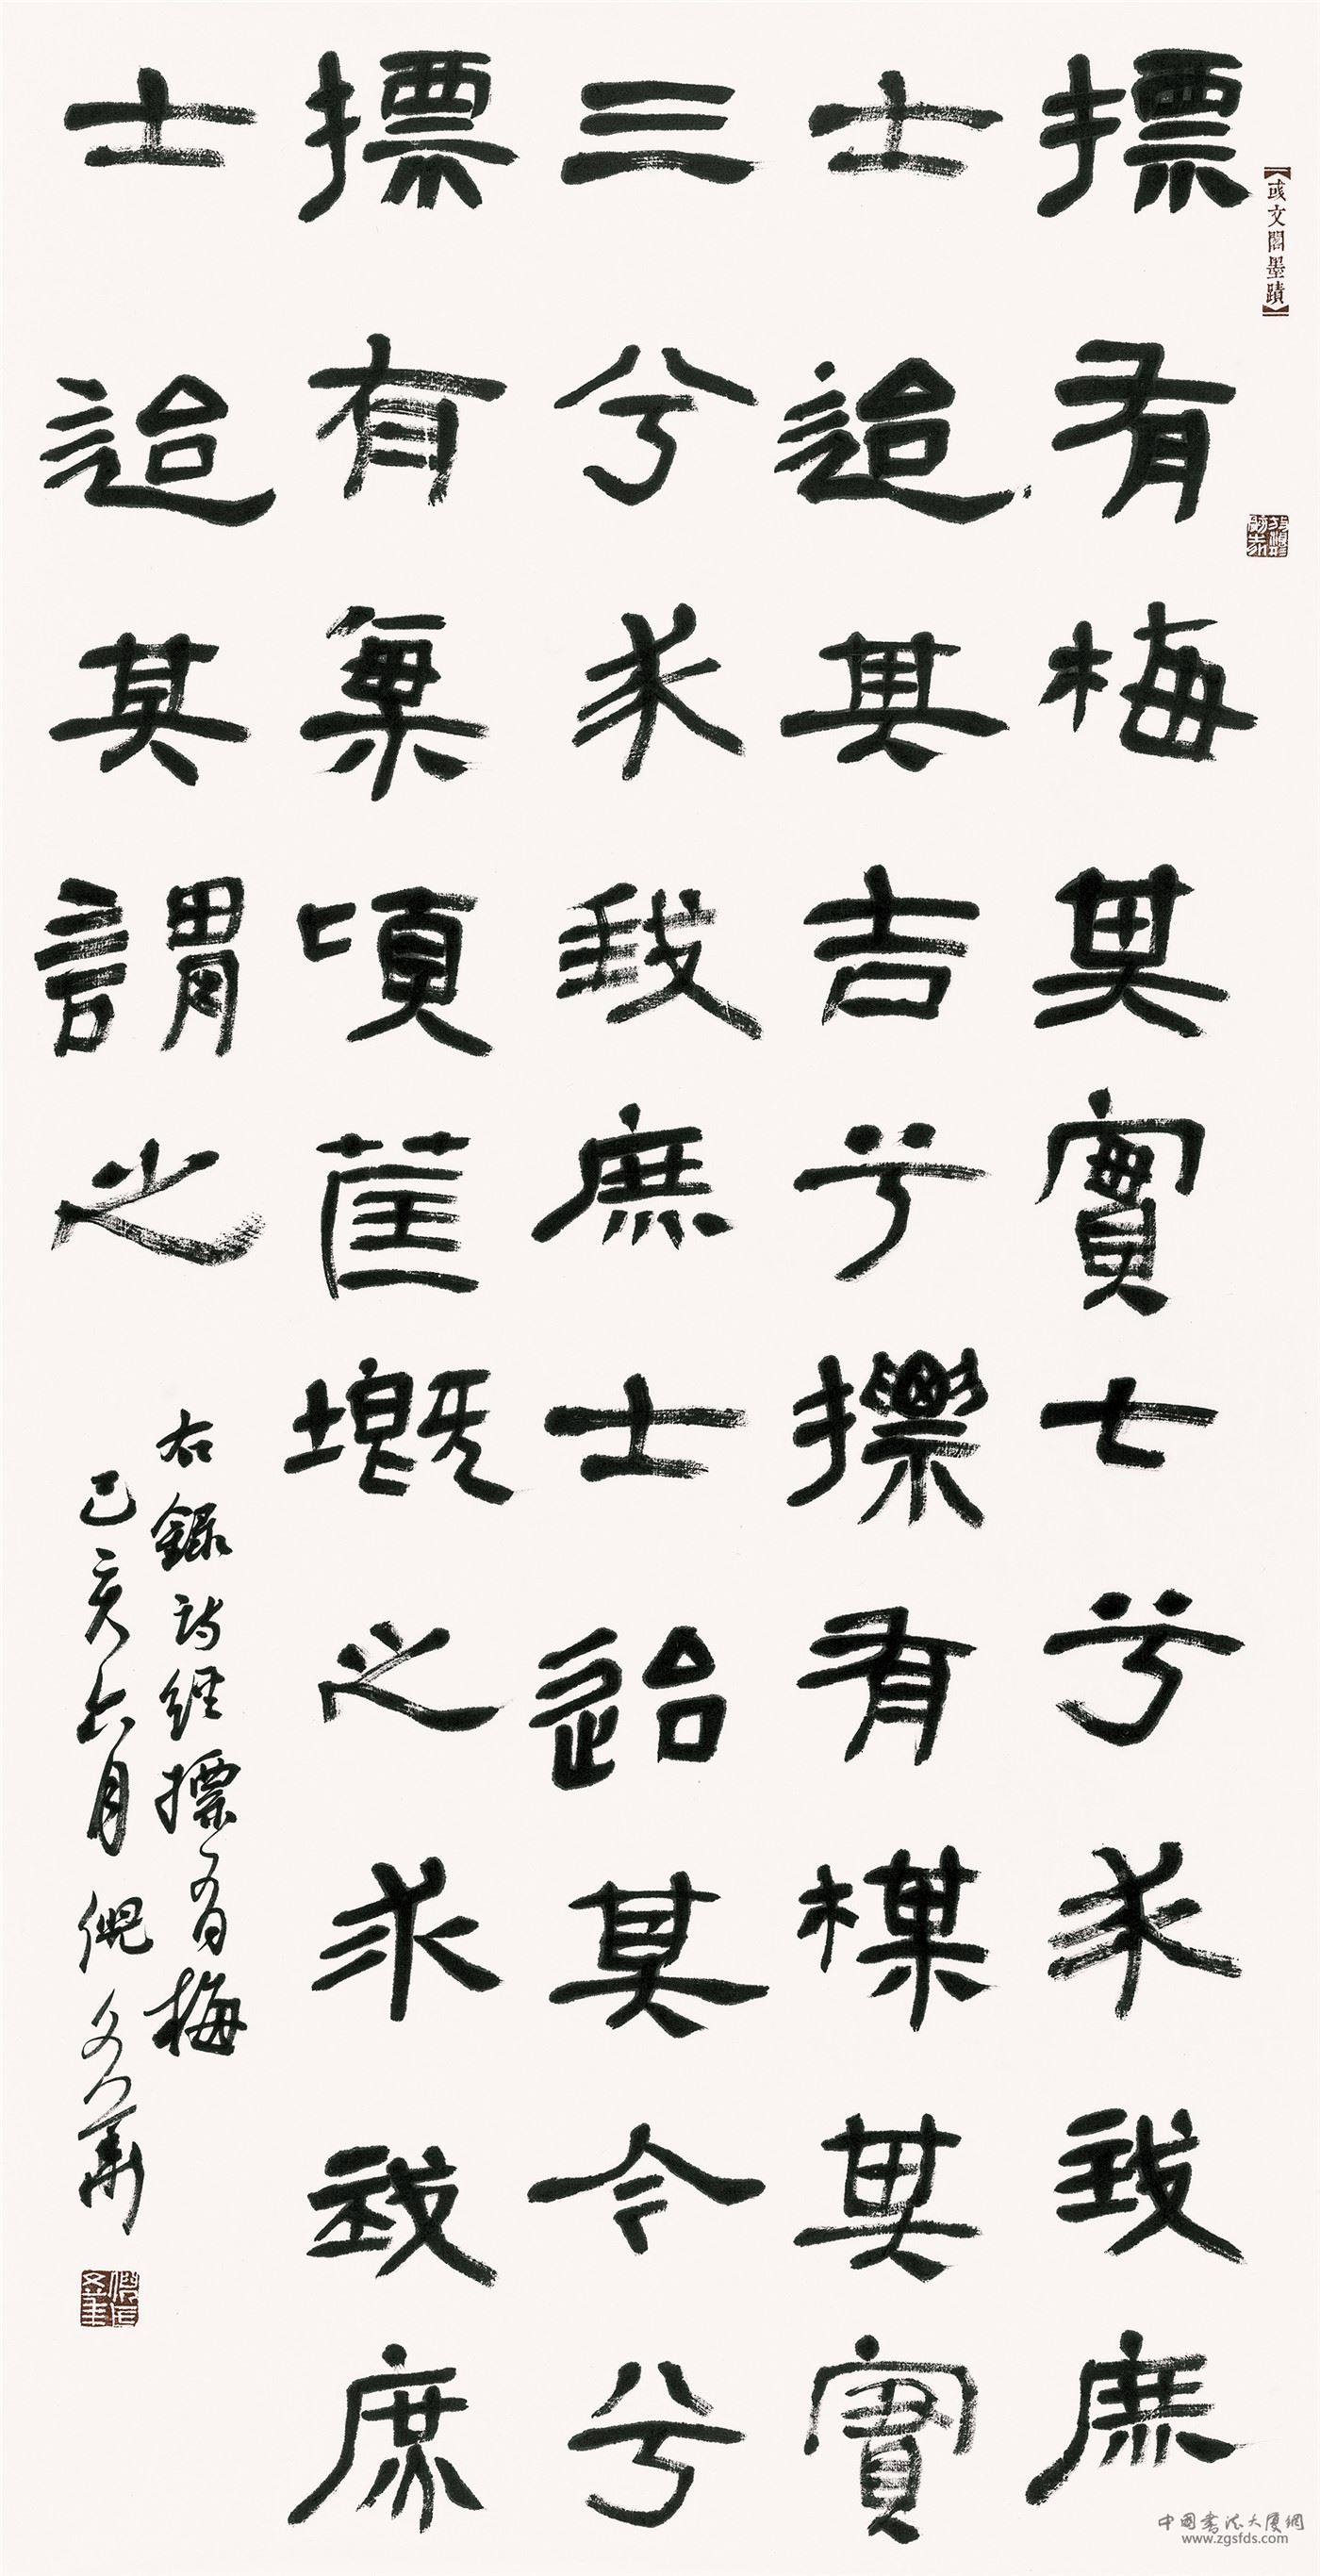 摽有梅其實七兮求我庶
士迨其吉兮摽有楳其實
三兮求我庶士迨其今兮
摽有某頃筐塈之求我庶
士迨其謂之
右錄詩經摽有梅
己亥六月倪文華
【彧文閣墨蹟】
中國書法大廈網
www.zgsfds.com